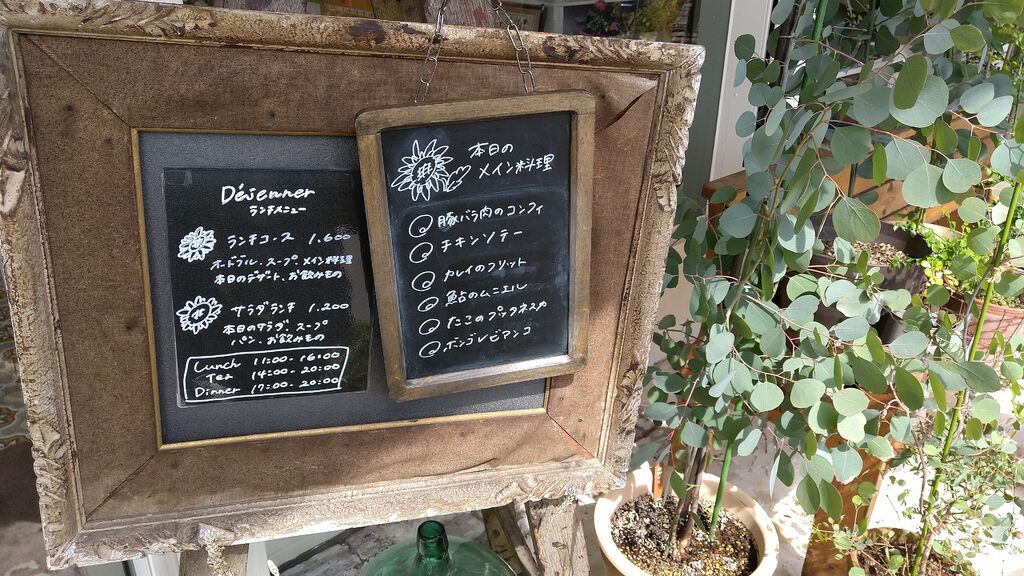 Déjeuner
ランチメニュー
ランチコース 1.600
オードブル.スープ メイン料理
本日のデザート.お飲みもの
サラダランチ 1.200
本日のサラダ.スープ
パン.お飲みもの
Lunch 11:00-16:00
Tea 14:00-20:00
Dinner 17:00-20:00
本日の
メイン料理
豚バラ肉のコンフィ
チキンソテー
カレイのフリット
鮎のムニエル
たこのプッタネスカ
ボンゴレビアンコ